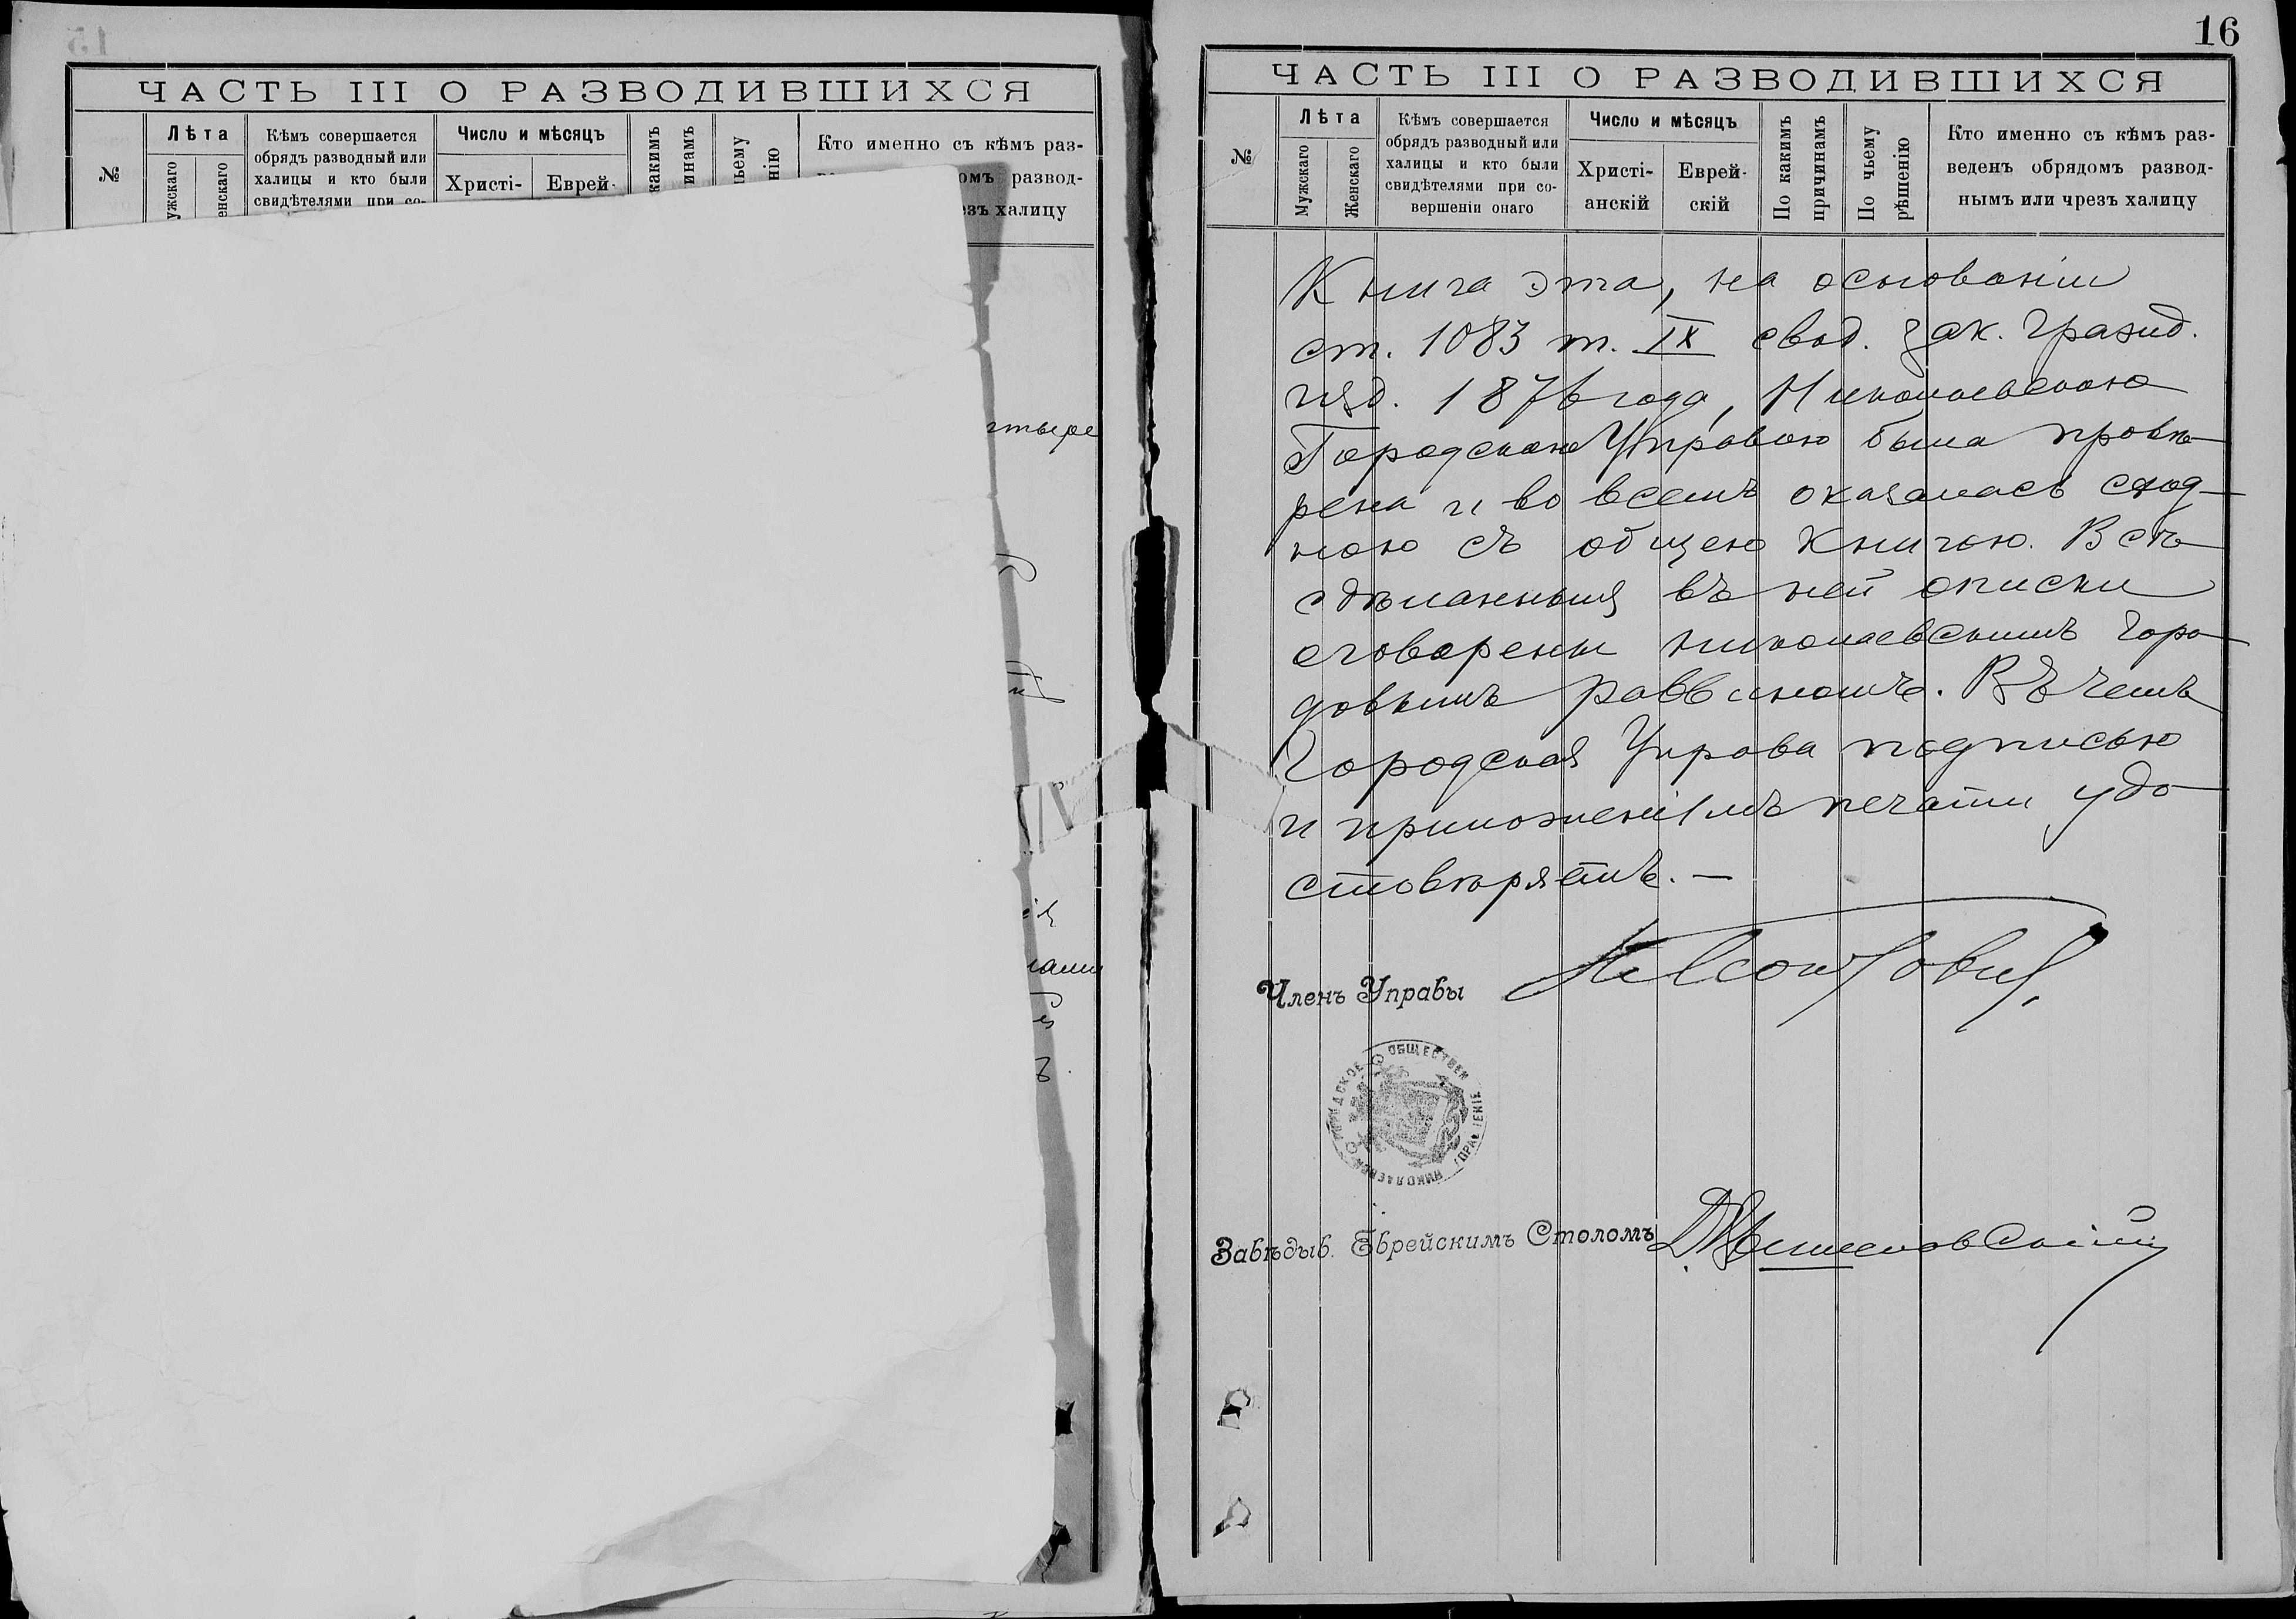 ЧАСТЬ III О РАЗВОДИВШИХСЯ
№
Лѣта
Кѣмъ совершается
обрядъ разводный или
халицы и кто были
свидѣтелями при со-
Число и мѣсяцъ
Христі-
Еврей-
Кто именно съ кѣмъ раз-
развод-
халицу
16
ЧАСТЬ III О РАЗВОДИВШИХСЯ
№
Лѣта
Мужскаго
Женскаго
Кѣмъ совершается
обрядъ разводный или
халицы и кто были
свидѣтелями при со-
вершеніи онаго
Число и мѣсяцъ
Христі-
анскій
Еврей-
скій
По какимъ
причинамъ
По чьему
рѣшенію
Кто именно съ кѣмъ раз-
веденъ обрядомъ развод-
нымъ или чрезъ халицу
Книга эта, на основаніи
ст. 1083 т. IX свод. зак. гражд.
изд. 1876 года, Николаевскою
Городскою Управою была провѣ-
рена и во всемъ оказалась сход-
ною съ общею книгою. Всѣ
сдѣланныя въ ней описки
оговорены николаевскимъ горо-
довымъ раввиномъ. Въ чемъ
Городская Управа подписью
и приложеніемъ печати удо-
стовѣряетъ. —
Членъ Управы
НИКОЛАЕВСКОЕ ГОРОДСКОЕ ОБЩЕСТВЕН УПРАВЛЕНІЕ
Завѣдыв. Еврейскимъ Столомъ